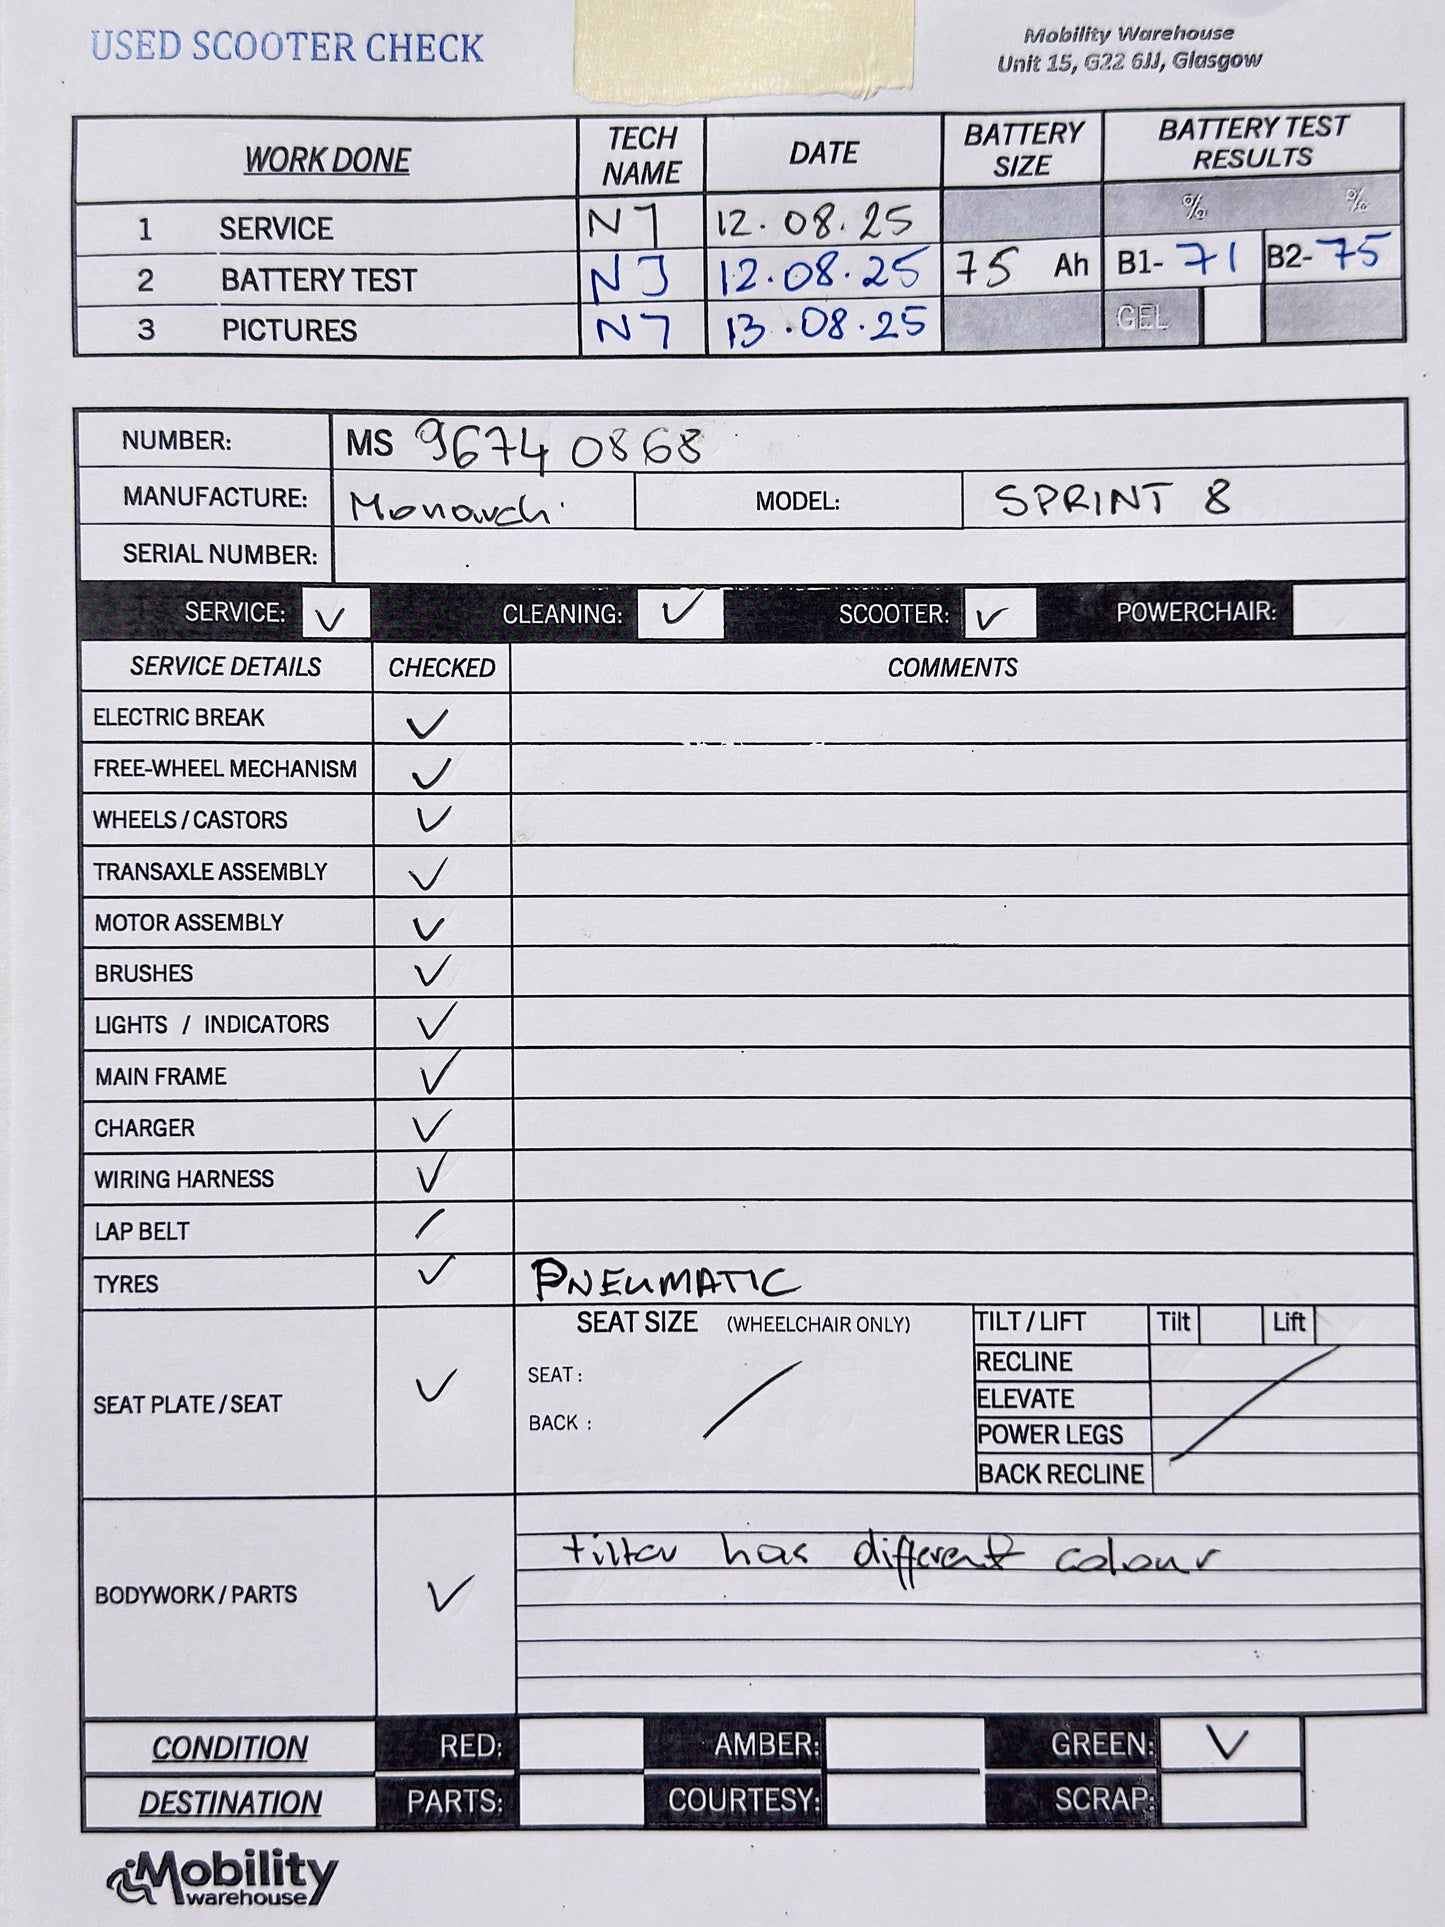 USED SCOOTER CHECK
Mobility Warehouse
Unit 15, G22 6JJ, Glasgow
WORK DONE TECH NAME DATE BATTERY SIZE BATTERY TEST RESULTS
% %
1 SERVICE NJ 12.08.25
2 BATTERY TEST NJ 12.08.25 75 Ah B1- 71 B2- 75
3 PICTURES NJ 13.08.25 GEL
NUMBER: MS 96740868
MANUFACTURE: Monarch MODEL: SPRINT 8
SERIAL NUMBER:
SERVICE: ✓ CLEANING: ✓ SCOOTER: ✓ POWERCHAIR:
SERVICE DETAILS CHECKED COMMENTS
ELECTRIC BREAK ✓
FREE-WHEEL MECHANISM ✓
WHEELS / CASTORS ✓
TRANSAXLE ASSEMBLY ✓
MOTOR ASSEMBLY ✓
BRUSHES ✓
LIGHTS / INDICATORS ✓
MAIN FRAME ✓
CHARGER ✓
WIRING HARNESS ✓
LAP BELT /
TYRES ✓ PNEUMATIC
SEAT PLATE / SEAT ✓
SEAT SIZE (WHEELCHAIR ONLY)
SEAT :
BACK : /
TILT / LIFT Tilt Lift
RECLINE
ELEVATE
POWER LEGS
BACK RECLINE
/
BODYWORK / PARTS ✓ tilter has different colour
CONDITION RED: AMBER: GREEN: ✓
DESTINATION PARTS: COURTESY: SCRAP:
Mobility
warehouse